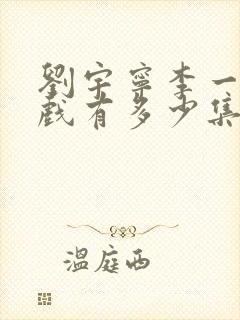 劉宇寧李一
戲有多少集
溫庭西